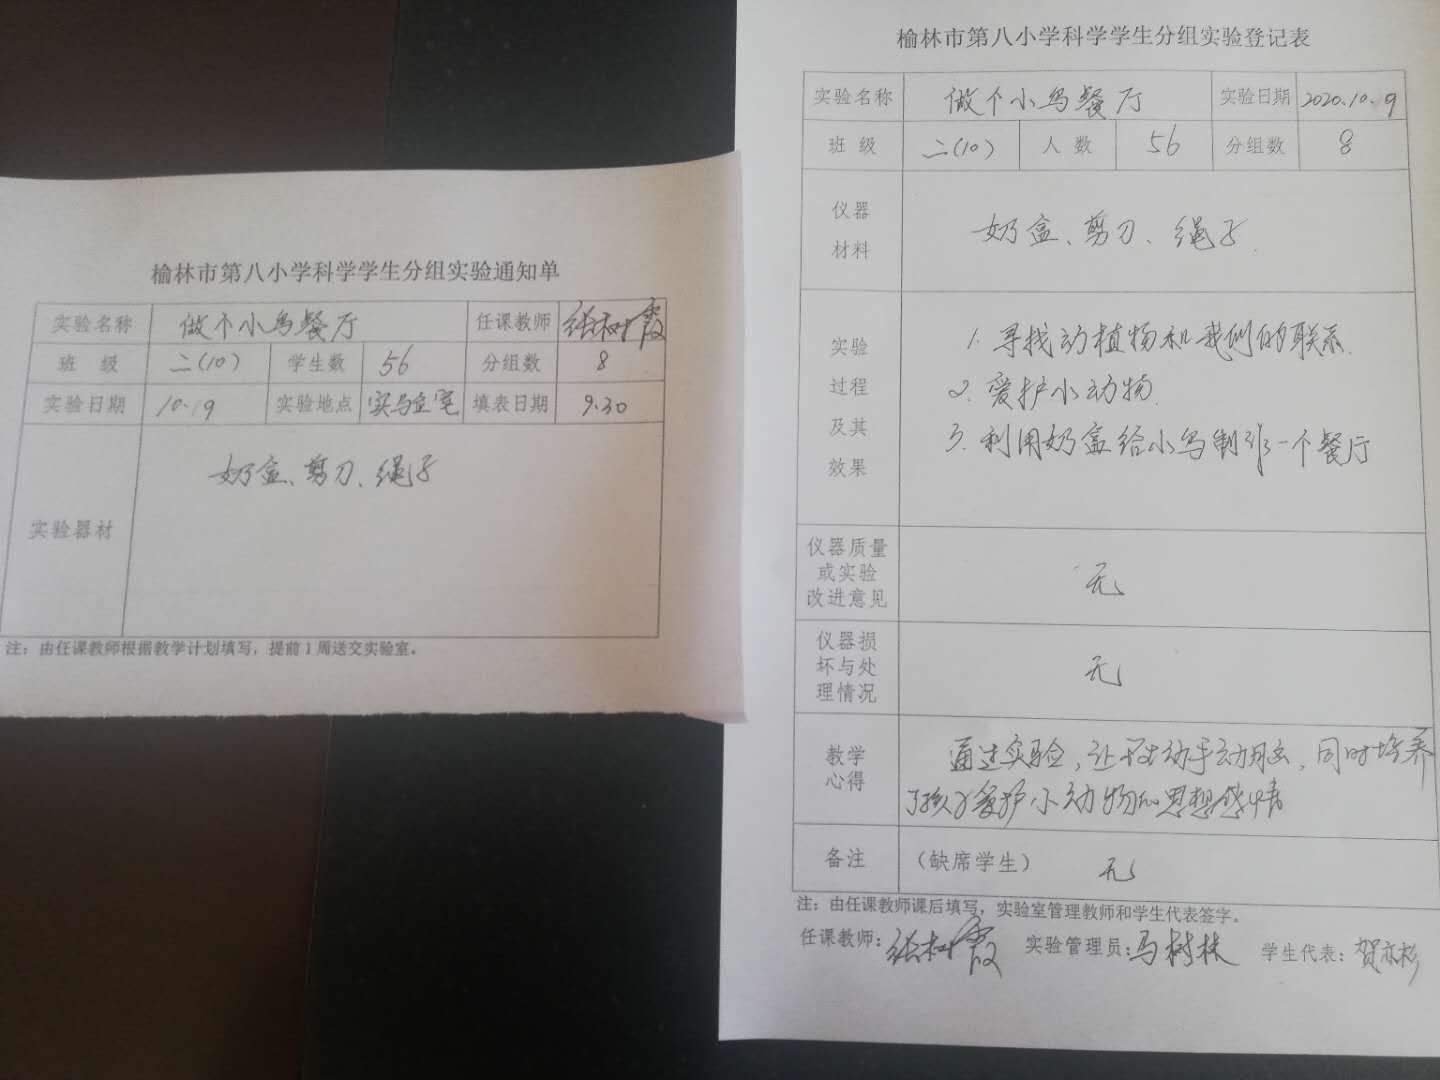 榆林市第八小学科学学生分组实验通知单
实验名称 做个小鸟餐厅 任课教师 张树霞
班 级 二(10) 学生数 56 分组数 8
实验日期 10.19 实验地点 实验室 填表日期 9.30
实验器材 奶盒、剪刀、绳子
注：由任课教师根据教学计划填写，提前1周送交实验室。
榆林市第八小学科学学生分组实验登记表
实验名称 做个小鸟餐厅 实验日期 2020.10.9
班 级 二(10) 人 数 56 分组数 8
仪器
材料
奶盒、剪刀、绳子.
实验
过程
及其
效果
1. 寻找动植物和我们的联系.
2. 爱护小动物.
3. 利用奶盒给小鸟制作一个餐厅
仪器质量
或实验
改进意见
无
仪器损
坏与处
理情况
无
教学
心得
通过实验，让 动手动脑，同时培养
了孩子爱护小动物的思想感情
备注 （缺席学生） 无
注：由任课教师课后填写，实验室管理教师和学生代表签字。
任课教师：张树霞 实验管理员：马树林 学生代表：贺亦杉